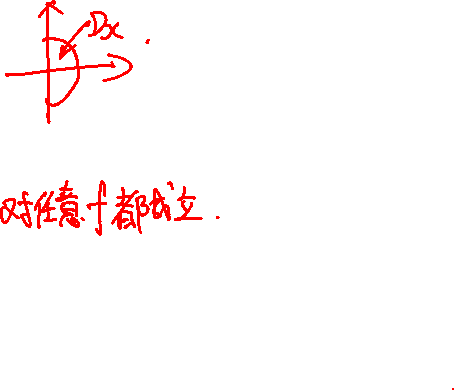 Dx
对任意f都成立.